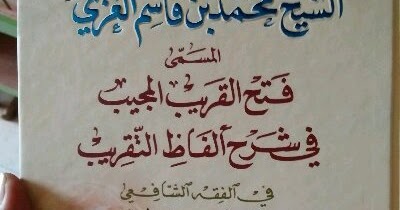 الشيخ محمد بن قاسم الغزي
المسمى
فتح القريب المجيب
في شرح ألفاظ التقريب
في الفقه الشافعي